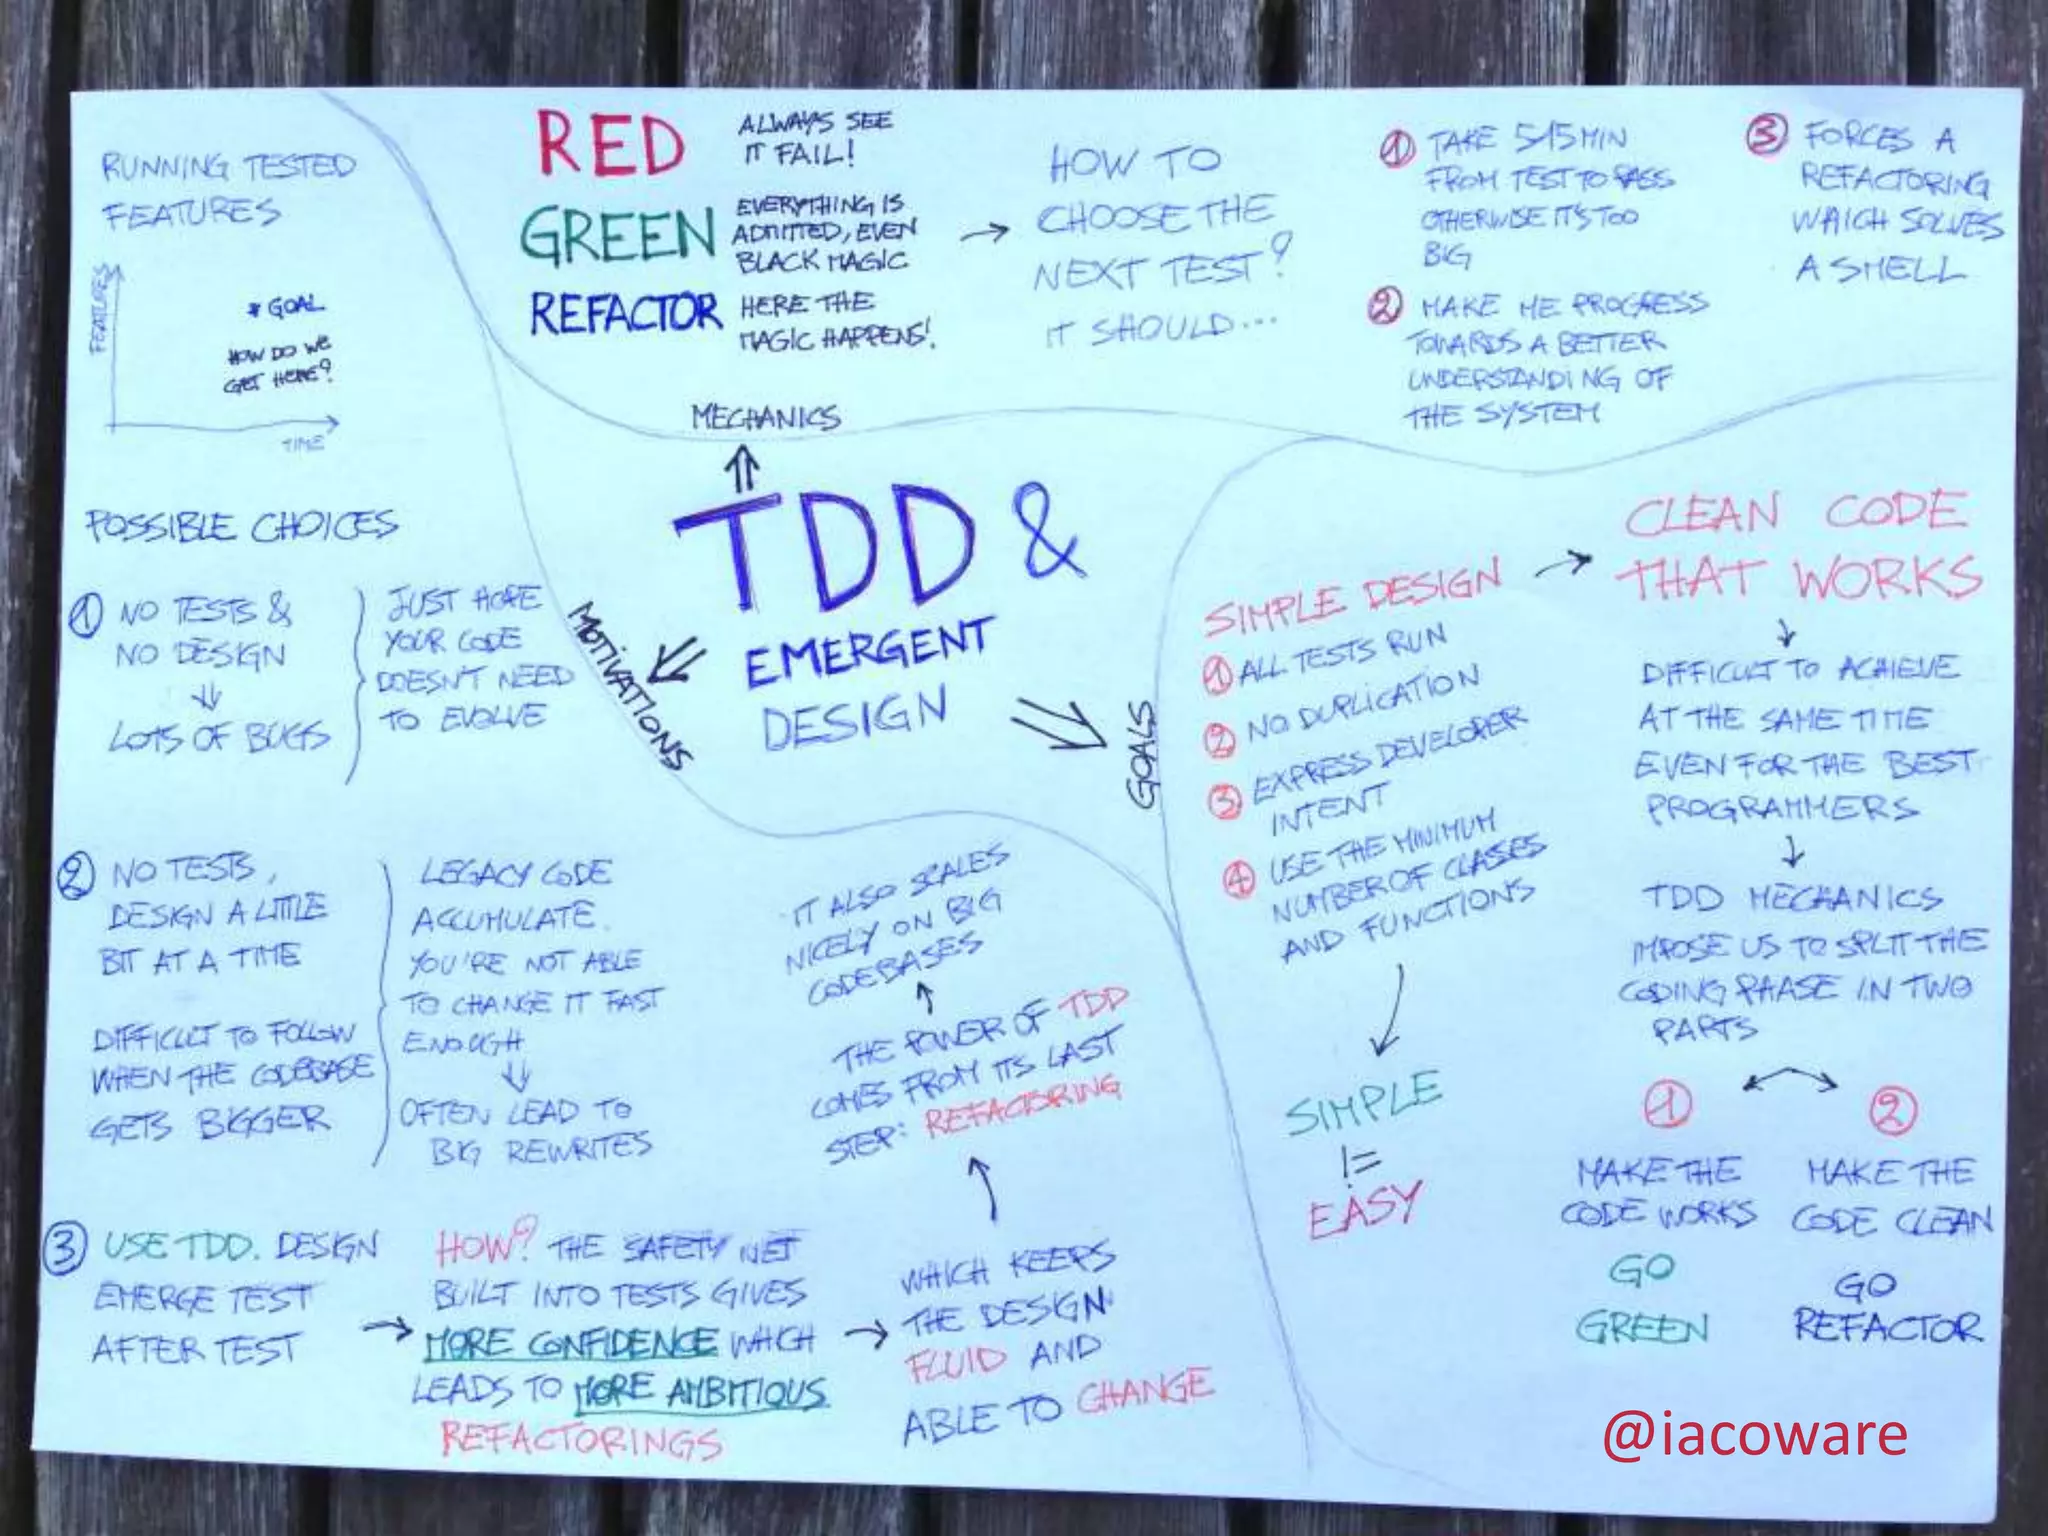 RUNNING TESTED
FEATURES
FEATURES
* GOAL
HOW DO WE
GET HERE?
TIME
POSSIBLE CHOICES
1 NO TESTS &
NO DESIGN
LOTS OF BUGS
JUST HOPE
YOUR CODE
DOESN'T NEED
TO EVOLVE
2 NO TESTS,
DESIGN A LITTLE
BIT AT A TIME
DIFFICULT TO FOLLOW
WHEN THE CODEBASE
GETS BIGGER
LEGACY CODE
ACCUMULATE.
YOU'RE NOT ABLE
TO CHANGE IT FAST
ENOUGH
OFTEN LEAD TO
BIG REWRITES
3 USE TDD. DESIGN
EMERGE TEST
AFTER TEST
HOW? THE SAFETY NET
BUILT INTO TESTS GIVES
MORE CONFIDENCE WHICH
LEADS TO MORE AMBITIOUS
REFACTORINGS
WHICH KEEPS
THE DESIGN
FLUID AND
ABLE TO CHANGE
THE POWER OF TDD
COMES FROM ITS LAST
STEP: REFACTORING
IT ALSO SCALES
NICELY ON BIG
CODEBASES
RED
ALWAYS SEE
IT FAIL!
GREEN
EVERYTHING IS
ADMITTED, EVEN
BLACK MAGIC
REFACTOR
HERE THE
MAGIC HAPPENS!
HOW TO
CHOOSE THE
NEXT TEST?
IT SHOULD...
1 TAKE 5-15 MIN
FROM TEST TO PASS
OTHERWISE IT'S TOO
BIG
2 MAKE ME PROGRESS
TOWARDS A BETTER
UNDERSTANDING OF
THE SYSTEM
3 FORCES A
REFACTORING
WHICH SOLVES
A SMELL
MECHANICS
TDD &
EMERGENT
DESIGN
MOTIVATIONS
GOALS
SIMPLE DESIGN
1 ALL TESTS RUN
2 NO DUPLICATION
3 EXPRESS DEVELOPER
INTENT
4 USE THE MINIMUM
NUMBER OF CLASES
AND FUNCTIONS
SIMPLE
!=
EASY
CLEAN CODE
THAT WORKS
DIFFICULT TO ACHIEVE
AT THE SAME TIME
EVEN FOR THE BEST
PROGRAMMERS
TDD MECHANICS
IMPOSE US TO SPLIT THE
CODING PHASE IN TWO
PARTS
1
MAKE THE
CODE WORKS
GO
GREEN
2
MAKE THE
CODE CLEAN
GO
REFACTOR
@iacoware